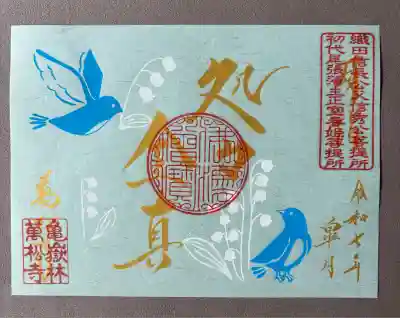 織田信長公父信秀公菩提所
初代尾張藩主正室春姫菩提所
令和七年
皐月
処全真
亀嶽林
萬松寺